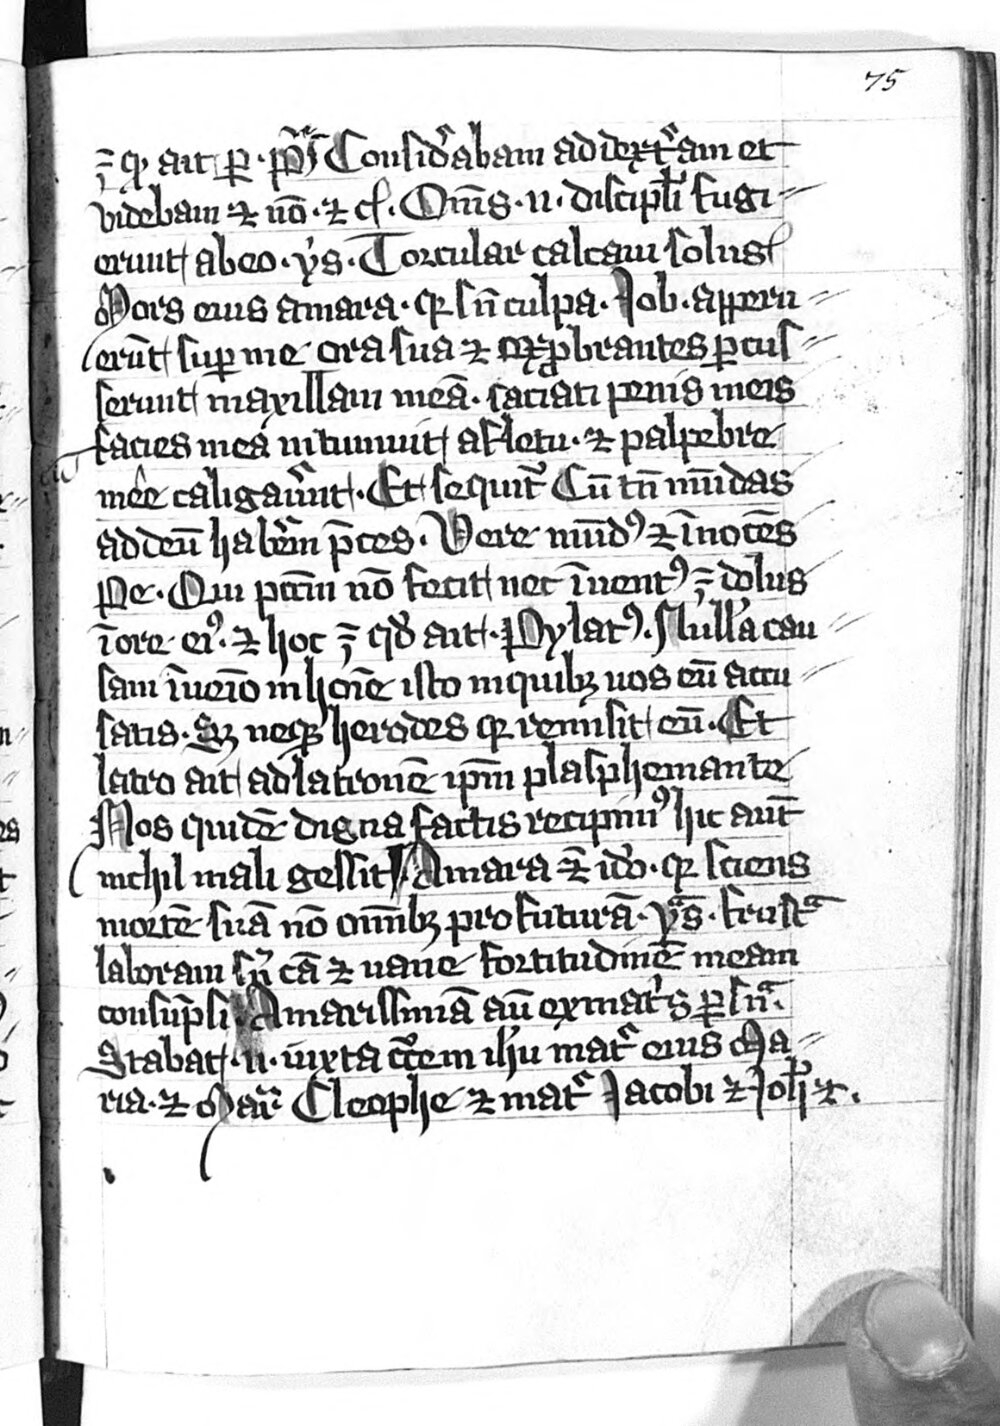 75
ait Considerabam ad dextram et
videbam et nō. et cͣ. Om̄s. n. discipl̄i fugi
erunt ab eo. ys. Torcular calcaui solus
Mors eius amara. qͥ sn̄ culpa. Job. apperu
erūt sup me ora sua et exprobrantes pcus
serunt maxillam meā. saciati penis meis
facies mea intumuit a fletu. et palpebre
mee caligauerūt. Et sequit̄ Cū tn̄ mūdas
ad deū haberem p̄ces. Vere mūdꝰ et īnocēs
Pe. Qui pctm̄ nō fecit nec īuentꝰ ē dolus
ī ore eiꝰ. et hoc ē qd ait. Pylatꝰ. Nullā cau
sam īueīo in hoīe isto in quibꝫ uos eū accu
satis. Sꝫ neqꝫ herodes qͥ remisit eū. Et
latro ait ad latronē ip̄m plasphemante
Nos quidē digna factis recipimꝰ hic aut̄
nichil mali gessit Amara ē ido. qͥ sciens
mortē suā nō om̄ibꝫ profuturā. Yͣs. frustͣ
laboraui sn̄ cā et uane fortitudinē meam
consūpsi Amarissimā aū ex matͥs p sn̄ͣ.
Stabat. n. iuxta cͨcem ihū matͬ eius Ma
ria. et Mar̄ Cleophe et matͬ Jacobi et Joh̄ et.